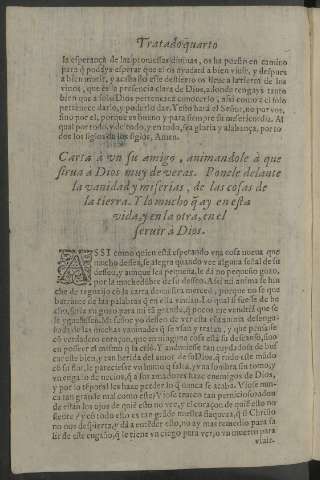 Tratado quarto
la esperança de las promessas diuinas, os ha puesto en camino
para q̃ podays esperar que el os ayudarà a bien viuir, y despues
a bien morir, y acabado este destierro os lleue a la tierra de los
viuos, que es la presencia clara de Dios, a donde tengays tanto
bien que a solo Dios pertenece conocerlo, assi como a el solo
pertenece darlo, y poderlo dar. Y esto harà el Señor, no por vos,
sino por el, porque es bueno y para siempre su misericordia. Al
qual por todo, y de todo, y en todo, sea gloria y alabança, por to-
dos los siglos de los siglos, Amen.
Carta à vn su amigo, animandole à que
sirua a Dios muy de veras. Ponele delante
la vanidad y miserias, de las cosas de
la tierra. Y lo mucho q̃ ay en esta
vida, y en la otra, en el
seruir à Dios.
ASSI como quien està esperando vna cosa nueua que
mucho dessea, se alegra quando vee alguna señal de su
desseo, y aunque sea pequeña, le dà no pequeño gozo,
por la muchedũbre de su desseo. Assi mi anima se hin
che de regozijo cõ la carta de vuestra merced, porque
las palabras q̃ en ella venian. Lo qual si
gozo para mi tã grande, q̃ pocos me vendrã que se
desseo de ver essa anima desenga-
ñada de las muchas vanidades q̃ se vsan y tratan, y que pensasse
cõ verdadero coraçon, que en ninguna cosa està su descanso, sino
en posseer al mismo q̃ la criò.
cue este bien, y tan herida del amor de su Dios, q̃ todo este mũdo
cõ su flor, le pareciesse vn humo q̃ passa, y vna sombra sin tomo, y
vn engaño de necios, q̃ a sus amadores haze enemigos de Dios,
y por lo tẽporal les haze perder lo q̃ nunca se acaba.
ca tan grande mal como este?
de estàn los ojos de quiẽ esto no vee, y el coraçon de quiẽ esto no
siente? y cõ todo esto es tan grãde nuestra flaqueza, q̃ si Christo
no nos despierta, y dà a entẽder esto, no ay mas remedio para sa
lir de este engaño, q̃ le tiene vn ciego para ver, o vn muerto para
viuir.